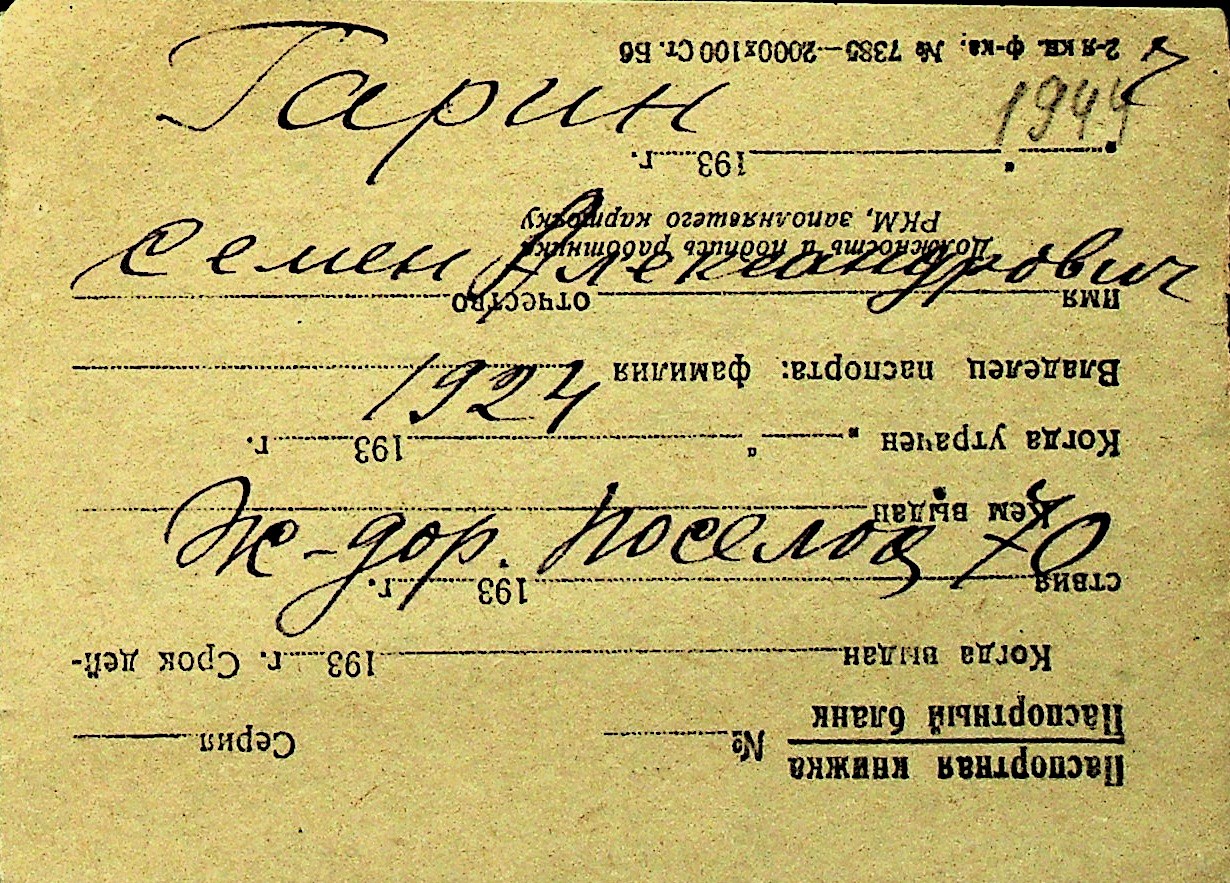 Гарин
1944
Семен Александрович
1924
Ж-дор. поселок 70
Паспортная книжка
Паспортный бланк
№ Серия
Когда выдан 193 г. Срок дей-
ствия 193 г.
Кем выдан
Когда утрачен „ “ 193 г.
Владелец паспорта: фамилия
имя отчество
Должность и подпись работника
РКМ, заполнявшего карточку
„ “ 193 г.
2-я кн. ф-ка, № 7385—2000х100 Ст. Бб